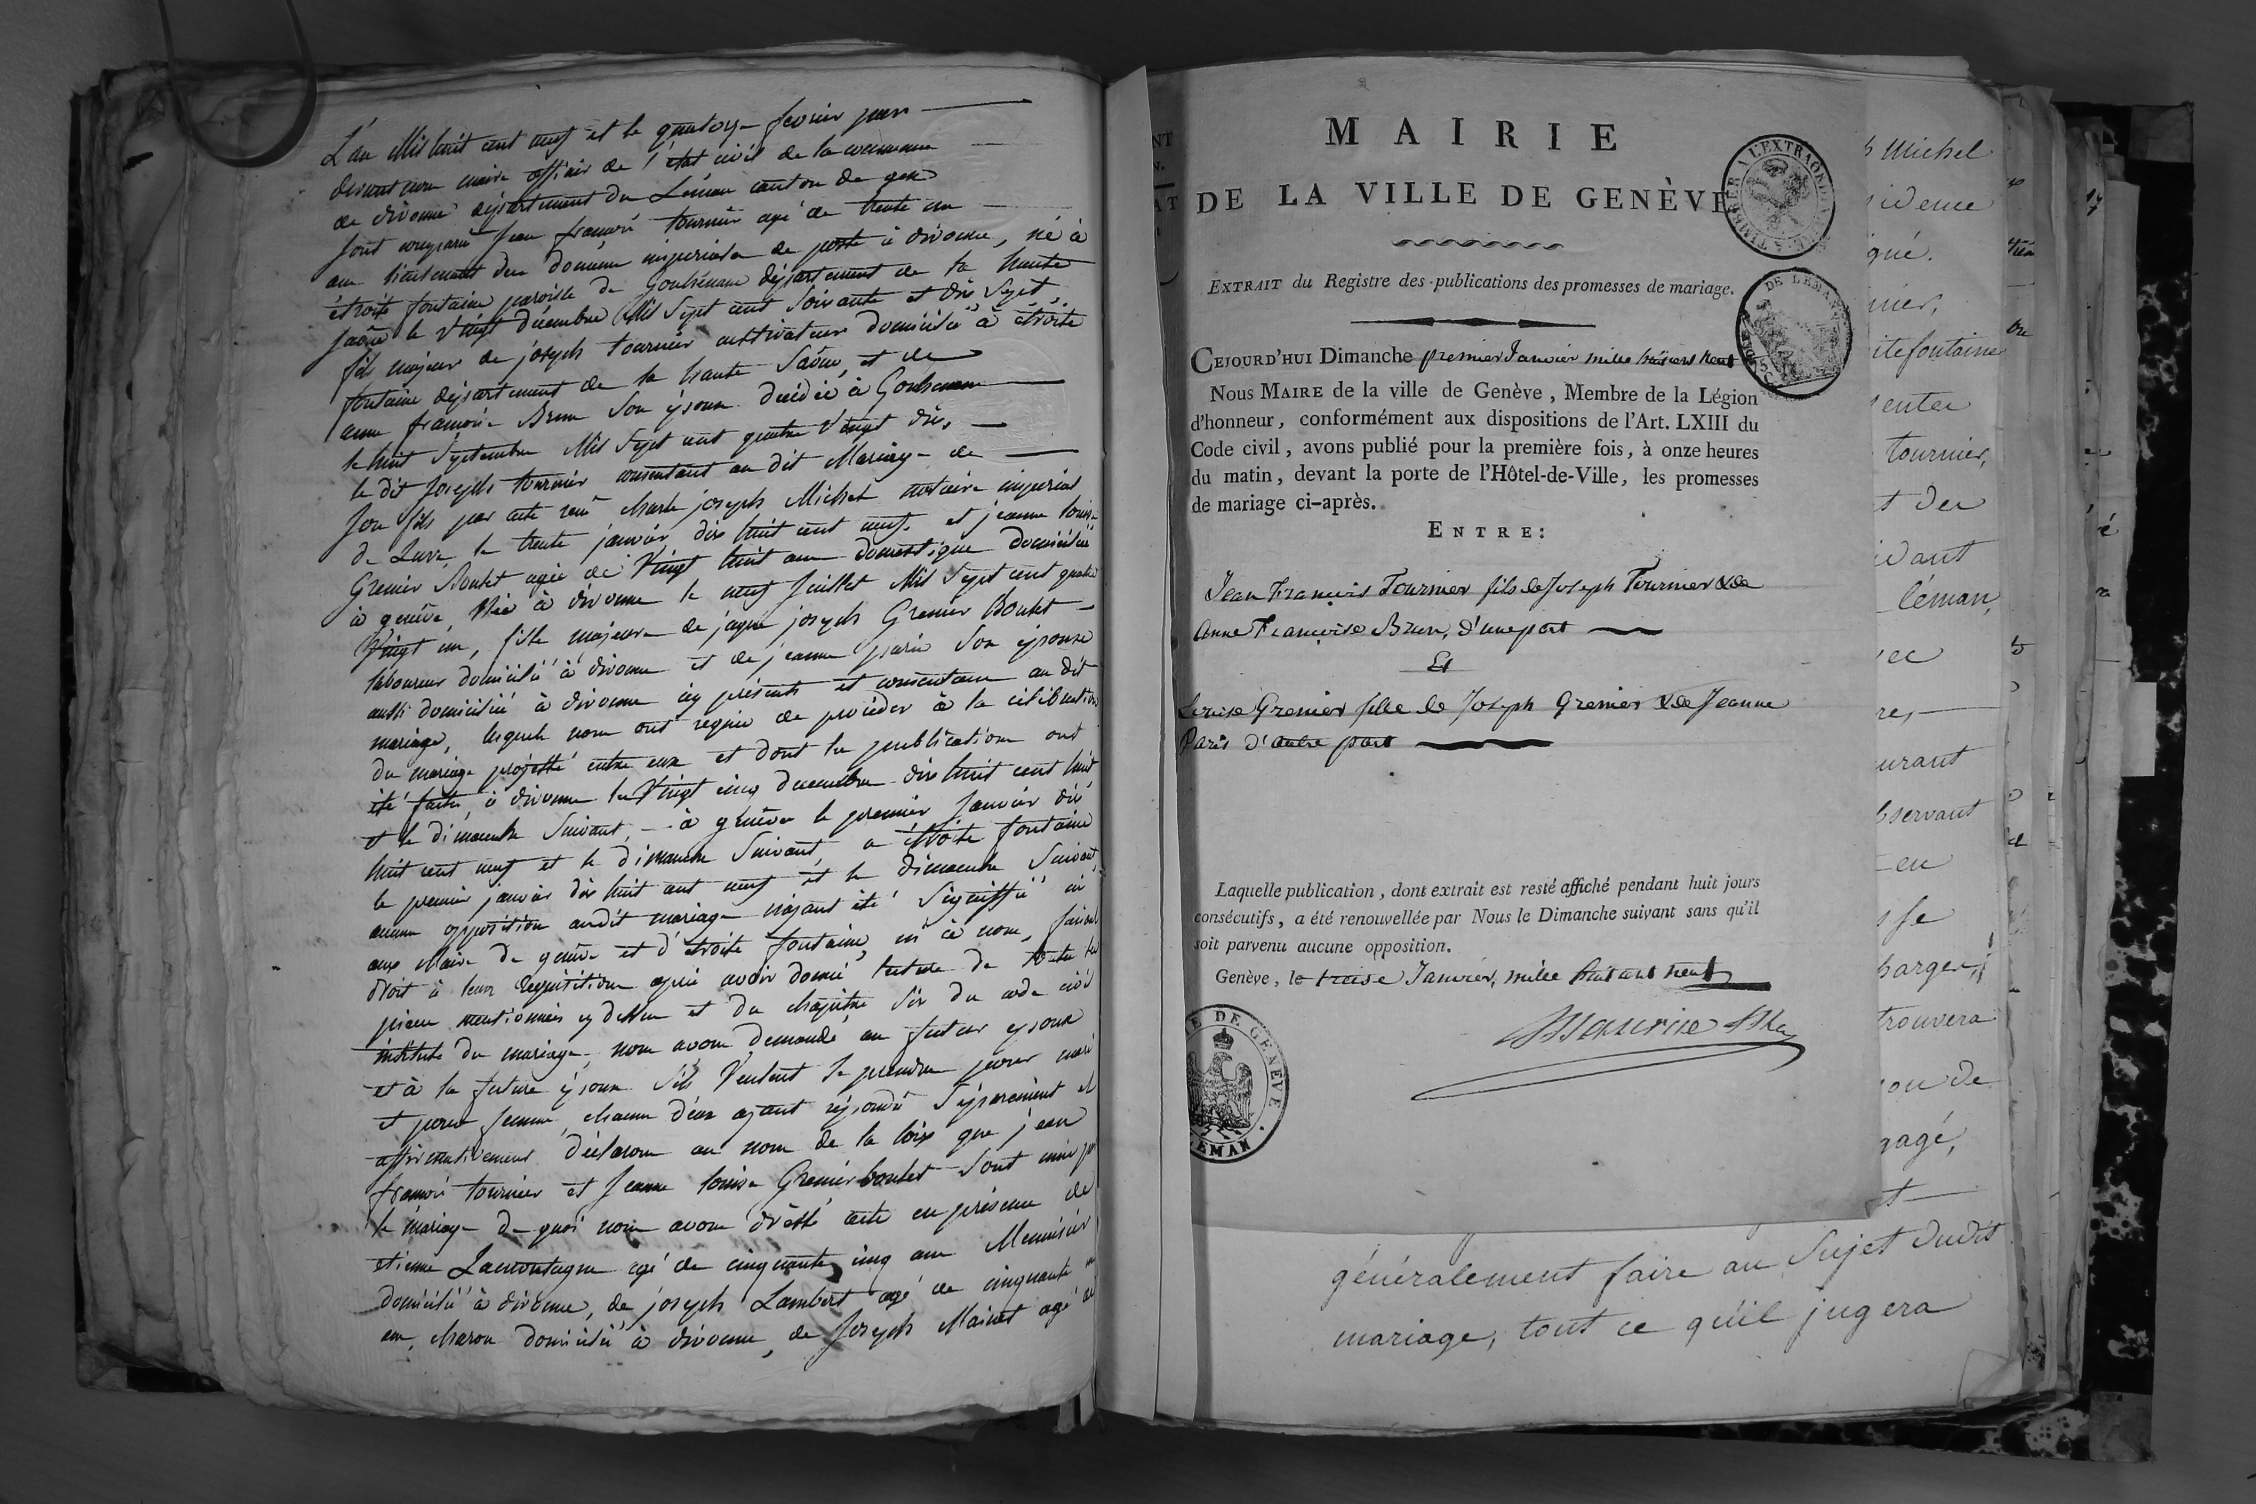 L'an Mil huit cent neuf et le quatorze fevrier par
devant nous maire officier de l'état civil de la commune
de divonne département du Léman canton de gex
sont comparus Jean françois tournier agé de trente un
ans lieutenant des douanes imperiales de poste à divonne, né à
étroite fontaine paroisse de Gouhenans département de la haute
saône le vingt décembre Mil sept cent soixante et dix sept
fils majeur de joseph tournier cultivateur domicilié à étroite
fontaine département de la haute Saône, et de
anne françoise Brun son épouse décédée à Gouhenans
le huit septembre Mil sept cent quatre vingt dix,
le dit Joseph tournier consentant au dit Mariage de
son fils par acte reçu charle joseph Michel notaire imperial
de Lure, le trente janvier dix huit cent neuf, et jeanne louise
Grenier Boulet agée de vingt huit ans domestique domiciliée
à genève, Née à divonne le neuf Juillet Mil sept cent quatre
vingt un, fille majeure de jaque joseph Grenier Boulet
laboureur domicilié à divonne et de jeanne paris son épouse
aussi domiciliée à divonne icy présents et consentans au dit
mariage, lesquels nous ont requis de procéder à la célébration
du mariage projetté entre eux et dont les publications ont
été faites à divonne le vingt cinq décembre dix huit cent huit
et le dimanche suivant, à genève le premier Janvier dix
huit cent neuf et le dimanche suivant, a étroite fontaine
le premier janvier dix huit cent neuf et le dimanche suivant,
aucune opposition audit mariage n'ayant été signiffié ni
aux Maire de genève et d'étroite fontaine, ni à nous, faisant
droit à leur requisition après avoir donné lecture de toutes les
pieces mentionnées cy dessus et du chapitre six du code civil
intitulé du mariage, nous avons demandé au futur epoux
et à la future épouse s'ils veulent se prendre pour mari
et pour femme, chacun d'eux ayant répondu séparément et
affirmativement déclarons au nom de la loix que jean
françois tournier et Jeanne louise Grenier boulet sont unis par
le mariage de quoi nous avons dréssé acte en présence de
etienne Lamontagne agé de cinquante cinq ans Menuisier
domicilié à divonne, de joseph Lambert agé de cinquante
ans, charon domicilié à divonne, de Joseph Mainet agé de
MAIRIE
DE LA VILLE DE GENÈVE
EXTRAIT du Registre des publications des promesses de mariage.
CEJOURD'HUI Dimanche premier Janvier mille huit cent neuf
Nous MAIRE de la ville de Genève, Membre de la Légion
d'honneur, conformément aux dispositions de l'Art. LXIII du
Code civil, avons publié pour la première fois, à onze heures
du matin, devant la porte de l'Hôtel-de-Ville, les promesses
de mariage ci-après.
ENTRE:
Jean François Tournier fils de Joseph Tournier & de
Anne Françoise Brun, d'une part
Et
Louise Grenier fille de Joseph Grenier & de Jeanne
Paris d'autre part
Laquelle publication, dont extrait est resté affiché pendant huit jours
consécutifs, a été renouvellée par Nous le Dimanche suivant sans qu'il
soit parvenu aucune opposition.
Genève, le treise Janvier, mille huit cent neuf
DE GENÈVE
LEMAN
Michel
idence
qué.
nier,
itefontaine
enter
tournier,
t des
idant
léman,
ec
res
urant
bservant
en
se
harger,
trouvera
on de
gagé,
t
généralement faire au Sujet dudit
mariage, tout ce qu'il jugera